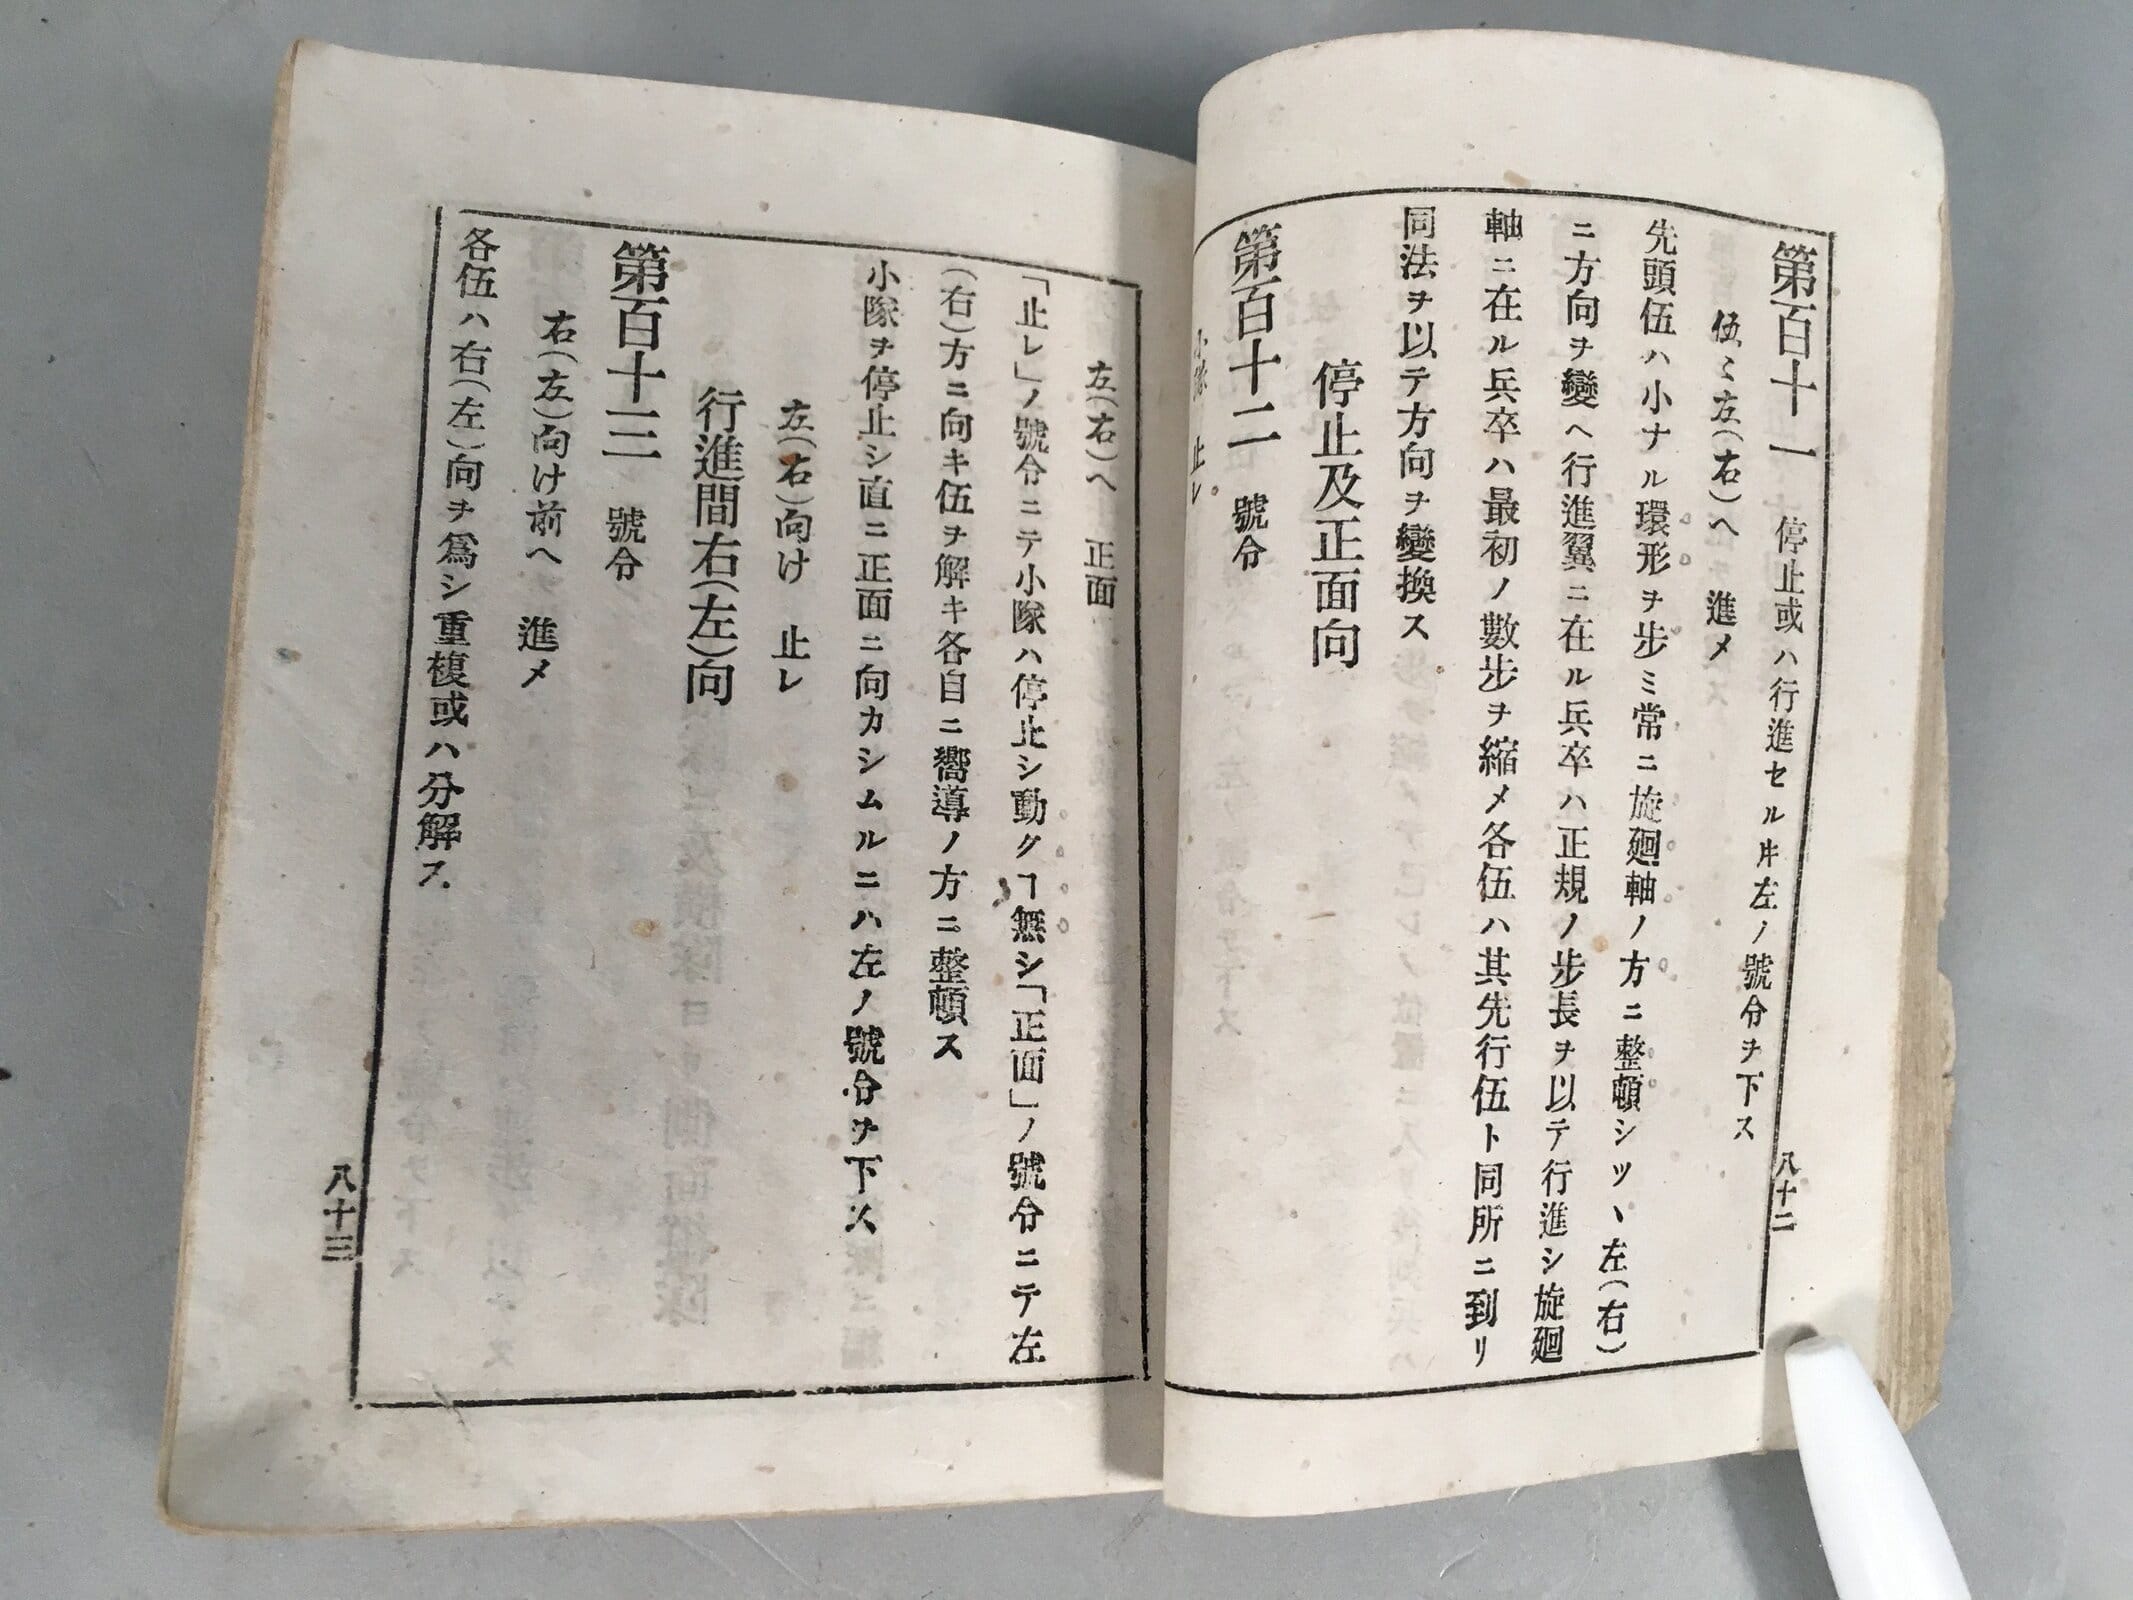 第百十一　停止或ハ行進セルㇳキ左ノ號令ヲ下ス
伍〻左(右)ヘ　進メ
先頭伍ハ小ナル環形ヲ歩ミ常ニ旋廻軸ノ方ニ整頓シツヽ左(右)
ニ方向ヲ變ヘ行進翼ニ在ル兵卒ハ正規ノ歩長ヲ以テ行進シ旋廻
軸ニ在ル兵卒ハ最初ノ數歩ヲ縮メ各伍ハ其先行伍ト同所ニ到リ
同法ヲ以テ方向ヲ變換ス
停止及正面向
第百十二　號令
小隊　止レ
八十二
左(右)ヘ　正面
「止レ」ノ號令ニテ小隊ハ停止シ動クヿ無シ「正面」ノ號令ニテ左
(右)方ニ向キ伍ヲ解キ各自ニ嚮導ノ方ニ整頓ス
小隊ヲ停止シ直ニ正面ニ向カシムルニハ左ノ號令ヲ下ス
左(右)向け　止レ
行進間右(左)向
第百十三　號令
右(左)向け前ヘ　進メ
各伍ハ右(左)向ヲ爲シ重複或ハ分解ス
八十三